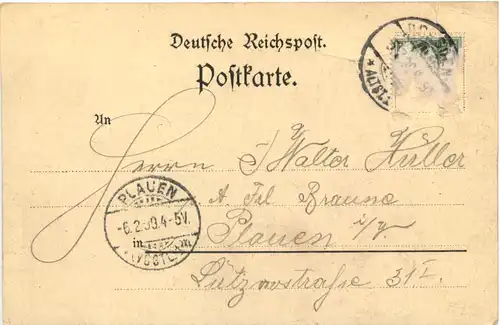 Deutsche Reichspost.
Postkarte.
An
Herrn Walter
A. Frl. Braune
Plauen i/V.
Lützowstraße 31 I
PLAUEN
-6.2.99.4-5V.
in